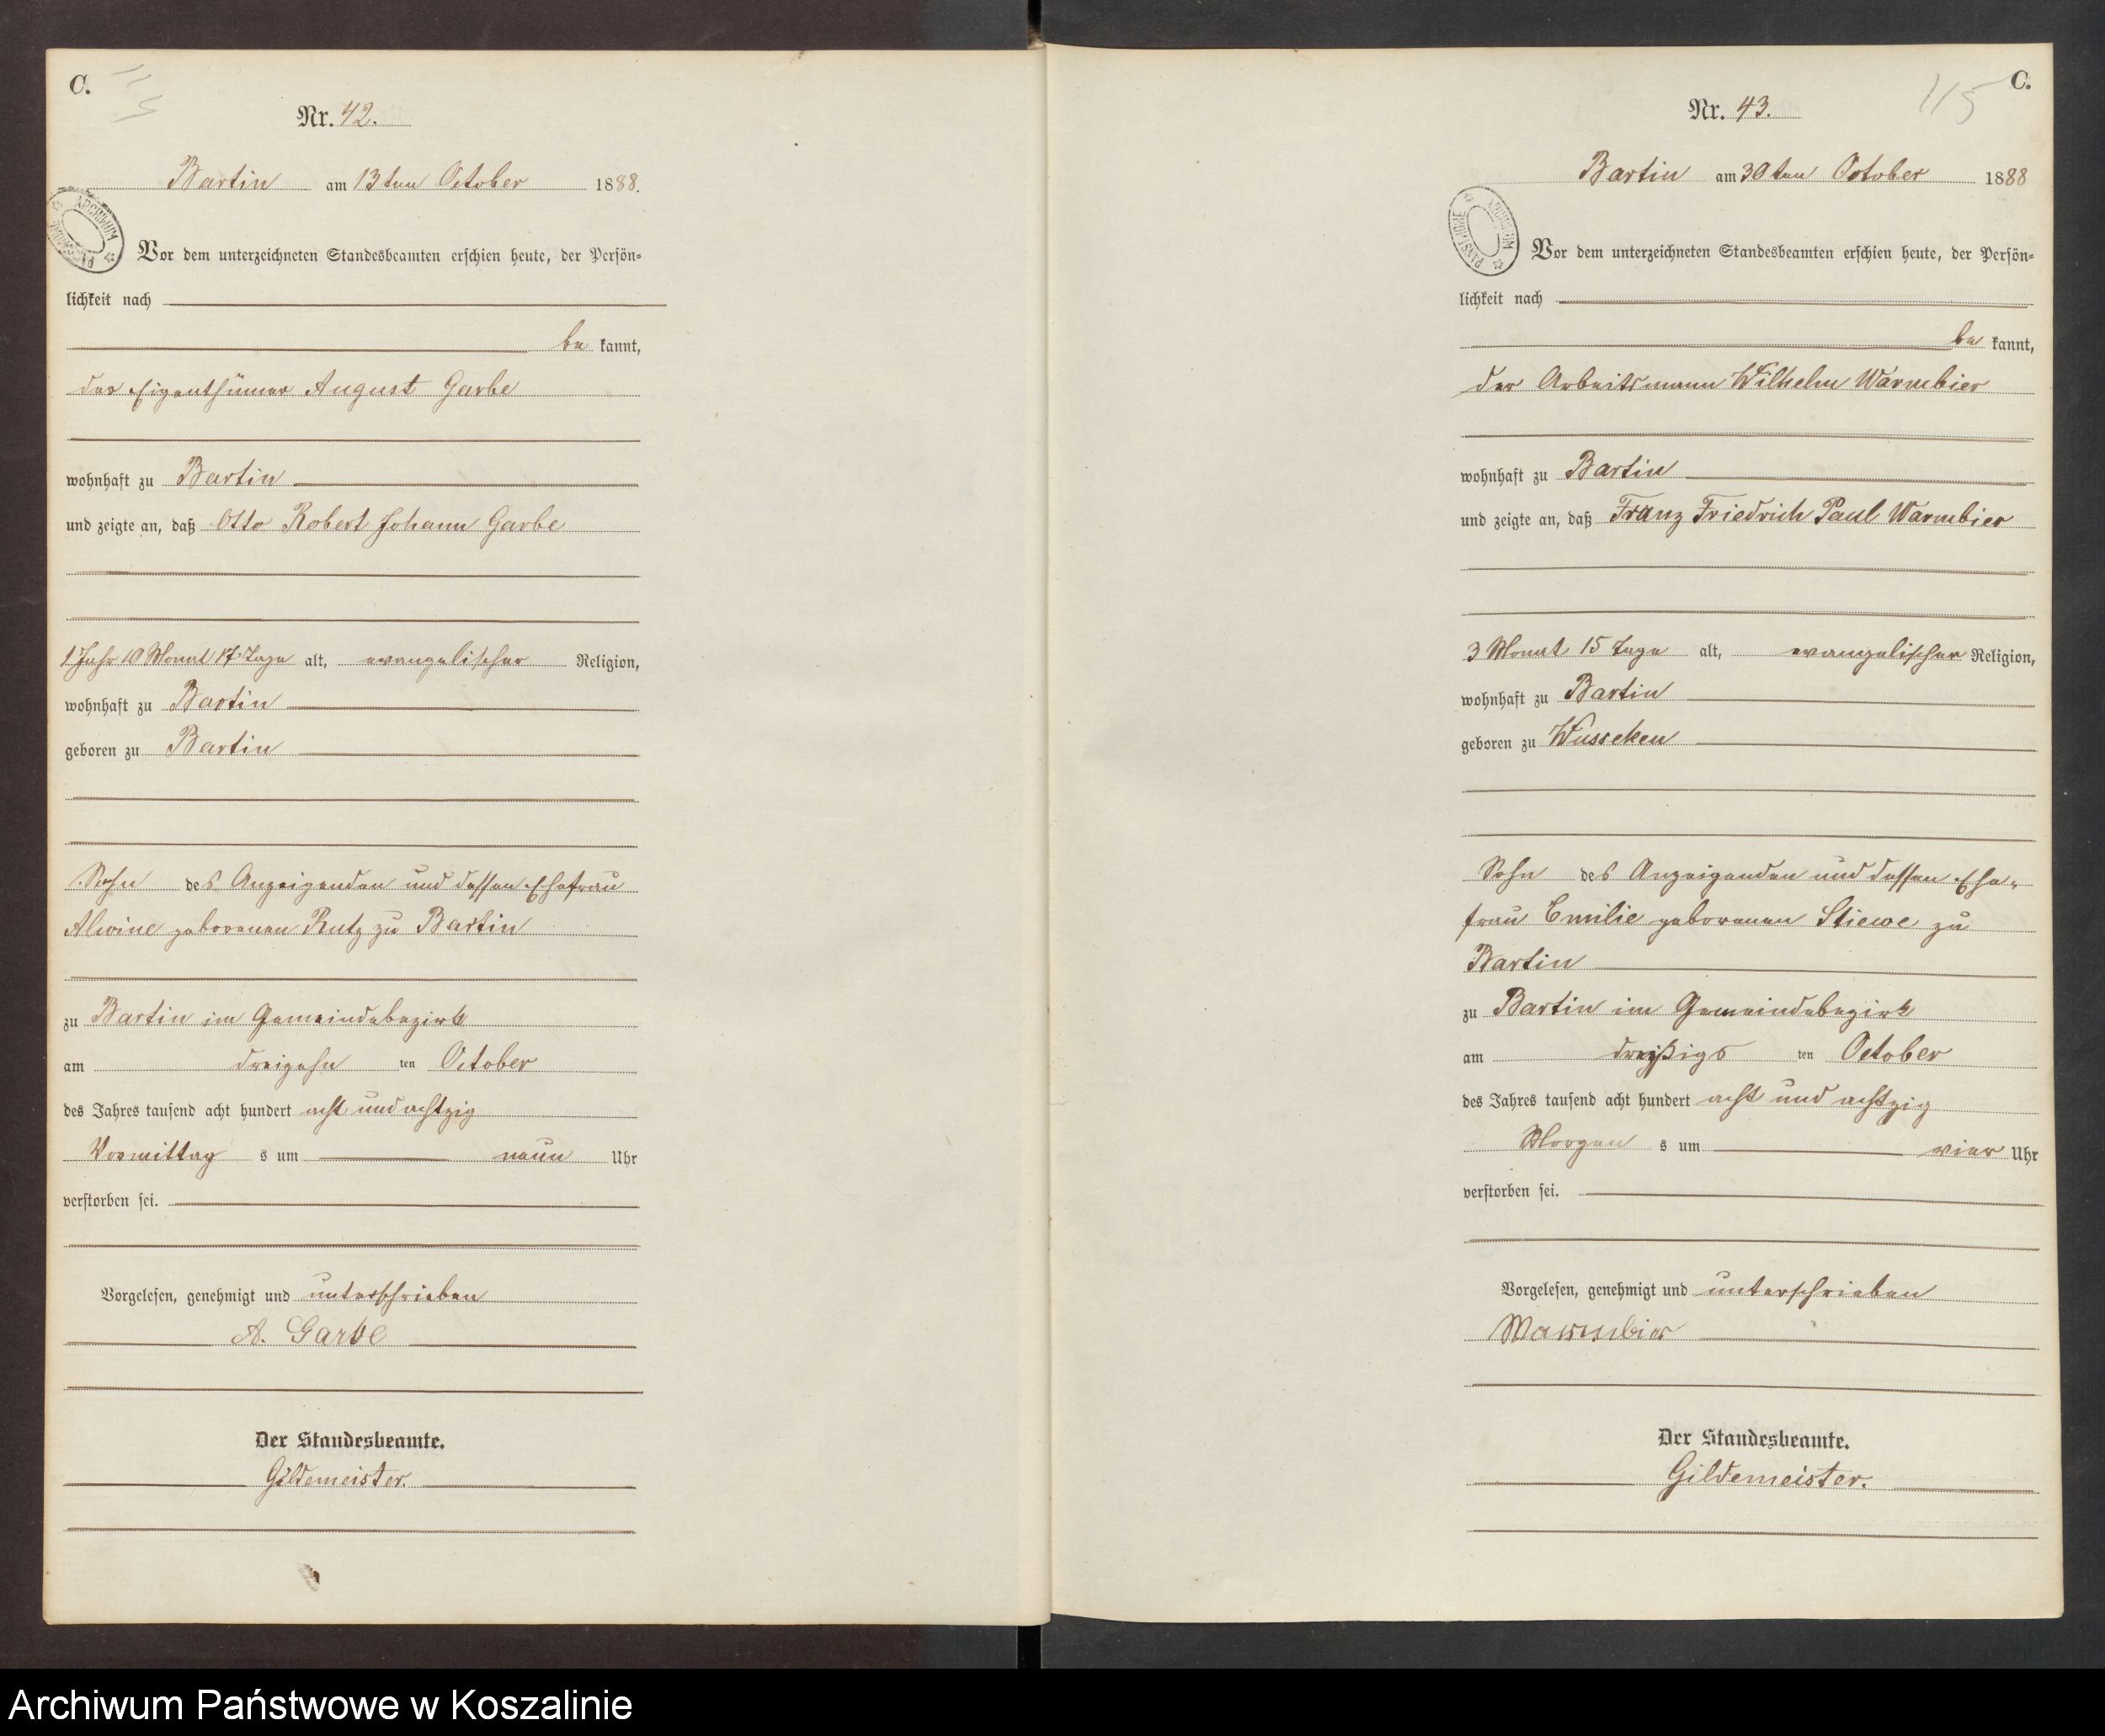 C.
Nr. 42.
Bartin am 13ten October 1888.
Vor dem unterzeichneten Standesbeamten erschien heute, der Persön=
lichkeit nach
be kannt,
der Eigenthümer August Garbe
wohnhaft zu Bartin
und zeigte an, daß Otto Robert Johann Garbe
1 Jahr 10 Monat 17 Tage alt, evangelischer Religion,
wohnhaft zu Bartin
geboren zu Bartin
Sohn des Anzeigenden und dessen Ehefrau
Alwine geborenen Rutz zu Bartin
zu Bartin im Gemeindebezirk
am dreizehn ten October
des Jahres tausend acht hundert acht und achtzig
Vormittag s um neun Uhr
verstorben sei.
Vorgelesen, genehmigt und unterschrieben
A. Garbe
Der Standesbeamte.
Gildemeister.
C.
115
Nr. 43.
Bartin am 30ten October 1888
Vor dem unterzeichneten Standesbeamten erschien heute, der Persön=
lichkeit nach
be kannt,
der Arbeitsmann Wilhelm Warmbier
wohnhaft zu Bartin
und zeigte an, daß Franz Friedrich Paul Warmbier
3 Monat 15 Tage alt, evangelischer Religion,
wohnhaft zu Bartin
geboren zu Wusseken
Sohn des Anzeigenden und dessen Ehe=
frau Emilie geborenen Stiewe zu
Bartin
zu Bartin im Gemeindebezirk
am dreißigs ten October
des Jahres tausend acht hundert acht und achtzig
Morgen s um vier Uhr
verstorben sei.
Vorgelesen, genehmigt und unterschrieben
Warmbier
Der Standesbeamte.
Gildemeister.
Archiwum Państwowe w Koszalinie